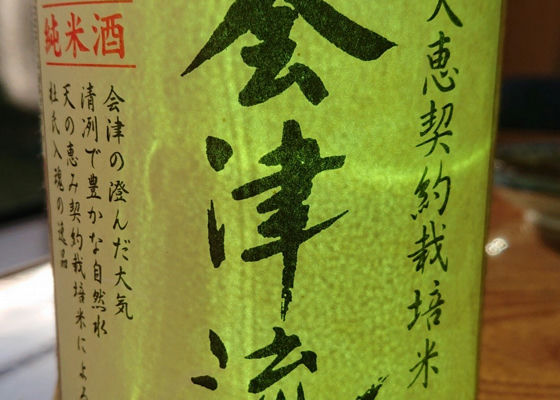 恵契約栽培米
会津流
純米酒
会津の澄んだ大気
清冽で豊かな自然水
天の恵み契約栽培米による
杜氏入魂の逸品